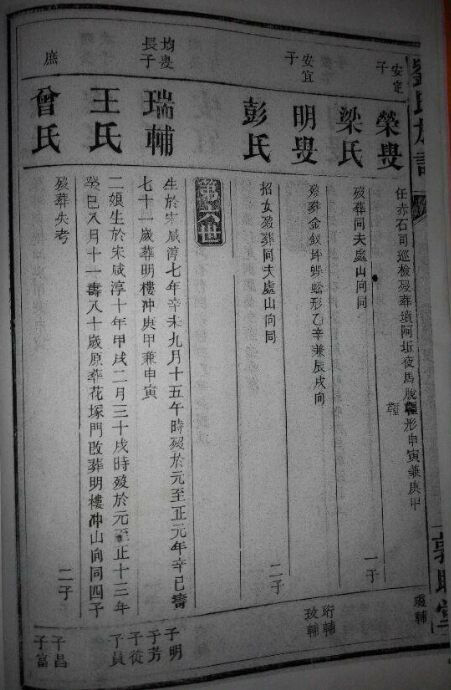 劉氏族譜
敦睦堂
安定子
榮叟
任赤石司巡檢歿葬遺阿坵夜馬脫韁形申寅兼庚甲
梁氏
歿葬同夫處山向同
一子
瑗輔
安宜子
明叟
歿葬金釵坪蜈蚣形乙辛兼辰戌向
彭氏
招女歿葬同夫處山向同
二子
珩輔
玫輔
第六世
均叟長子
瑞輔
生於宋咸淳七年辛未九月十五午時歿於元至正元年辛巳壽
七十一歲葬明樓冲庚甲兼申寅
王氏
二娘生於宋咸淳十年甲戌二月三十戌時歿於元至正十三年
癸巳八月十一壽八十歲原葬花塚門改葬明樓冲山向同四子
子明
子芳
子從
子員
庶
曾氏
歿葬失考
二子
子昌
子富